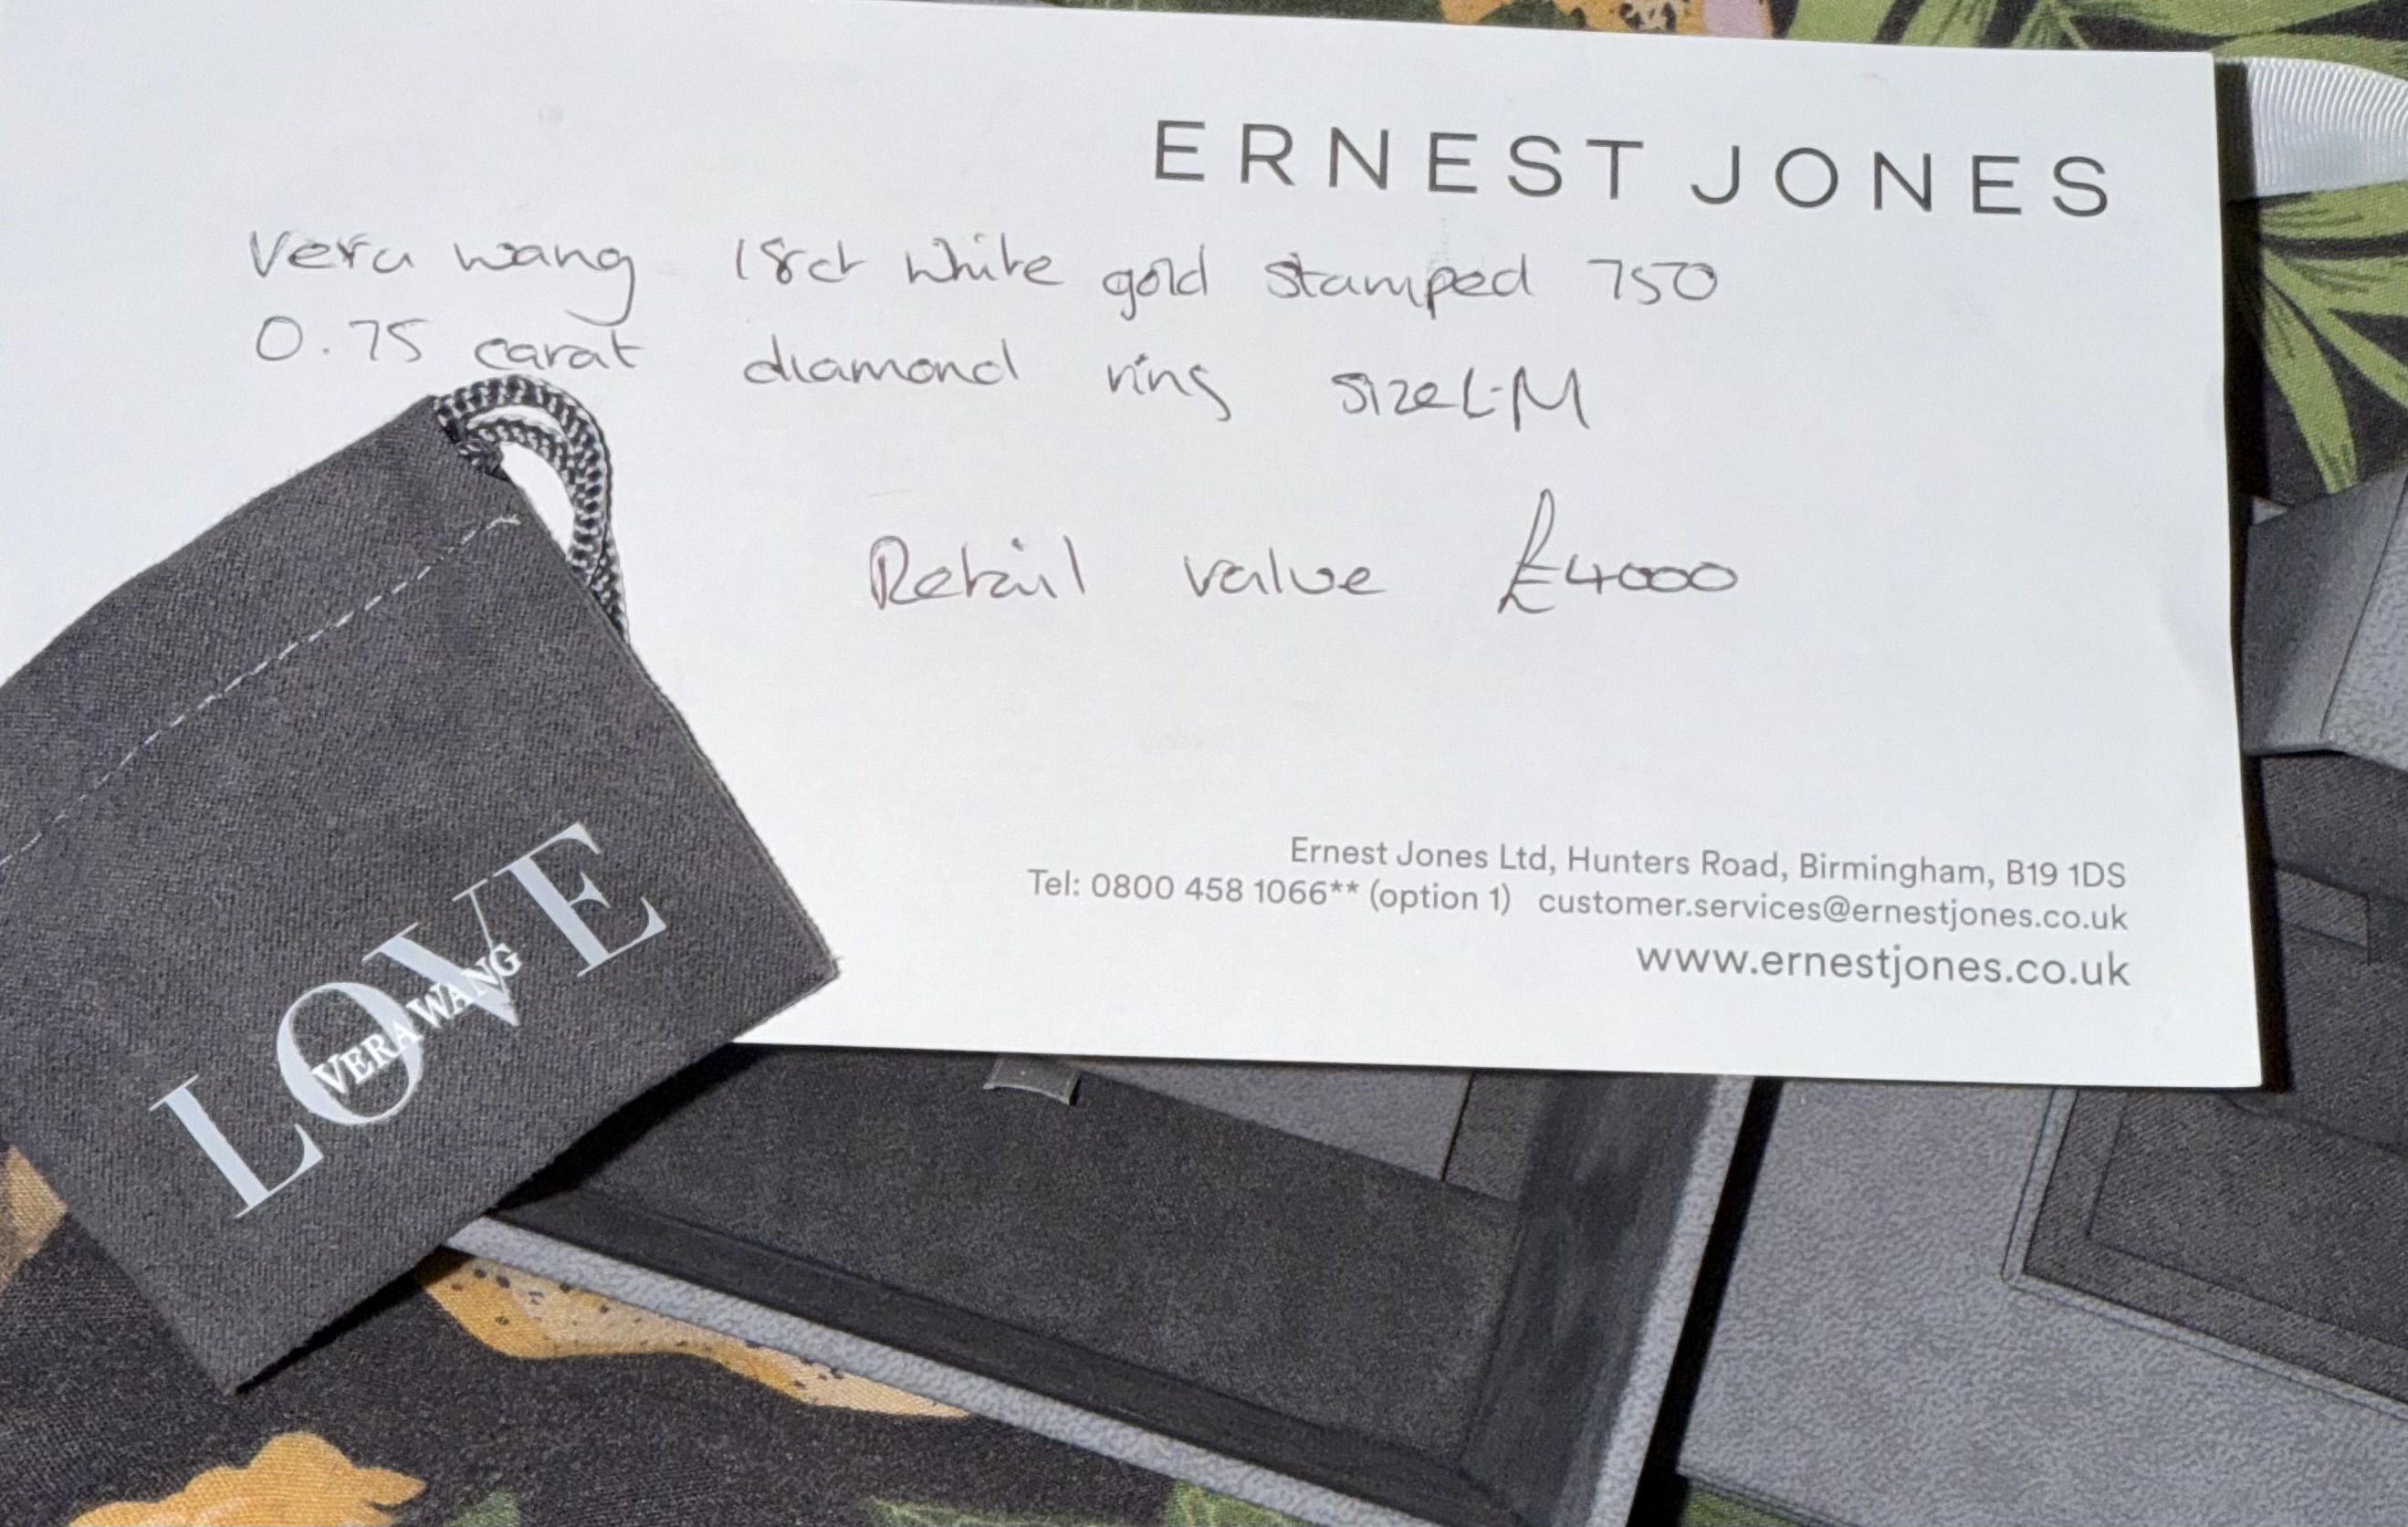 ERNEST JONES
Vera wang 18ct white gold stamped 750
0.75 carat diamond ring size L-M
Retail value £4000
Ernest Jones Ltd, Hunters Road, Birmingham, B19 1DS
Tel: 0800 458 1066** (option 1) customer.services@ernestjones.co.uk
www.ernestjones.co.uk
LOVE
VERA WANG